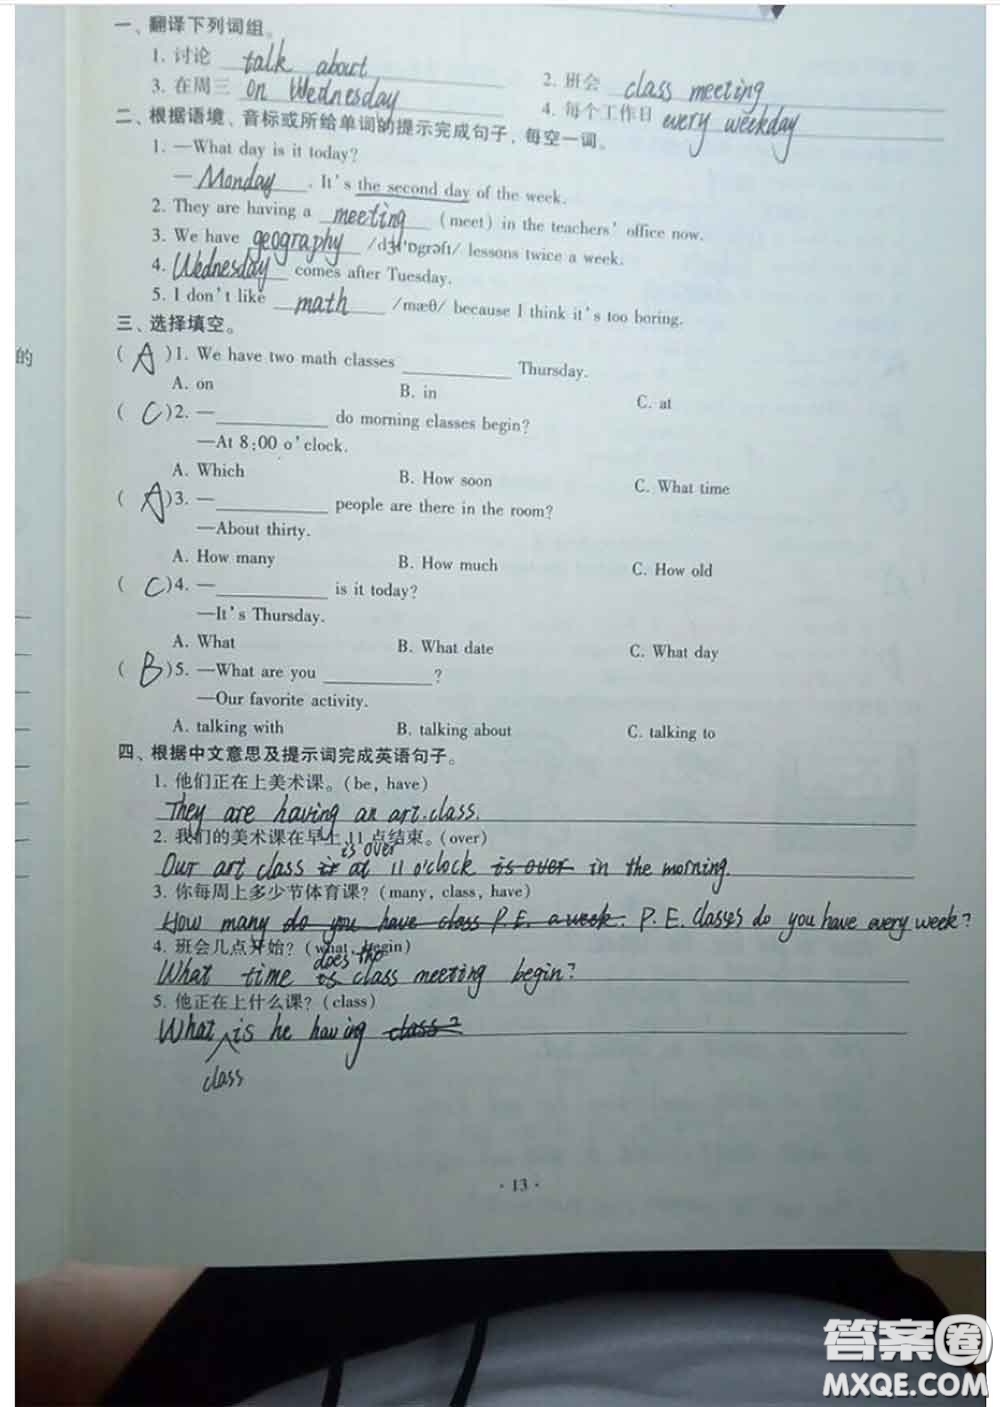 一、翻译下列词组。
1. 讨论 talk about 2. 班会 class meeting
3. 在周三 on Wednesday 4. 每个工作日 every weekday
二、根据语境、音标或所给单词的提示完成句子，每空一词。
1. —What day is it today?
— Monday . It's the second day of the week.
2. They are having a meeting (meet) in the teachers' office now.
3. We have geography /dʒɪ'ɒgrəfɪ/ lessons twice a week.
4. Wednesday comes after Tuesday.
5. I don't like math /mæθ/ because I think it's too boring.
三、选择填空。
的
( A )1. We have two math classes ____ Thursday.
A. on B. in C. at
( C )2. —____ do morning classes begin?
—At 8:00 o'clock.
A. Which B. How soon C. What time
( A )3. —____ people are there in the room?
—About thirty.
A. How many B. How much C. How old
( C )4. —____ is it today?
—It's Thursday.
A. What B. What date C. What day
( B )5. —What are you ____?
—Our favorite activity.
A. talking with B. talking about C. talking to
四、根据中文意思及提示词完成英语句子。
1. 他们正在上美术课。(be, have)
They are having an art class.
2. 我们的美术课在早上 11 点结束。(over)
is over
Our art class is at 11 o'clock is over in the morning.
3. 你每周上多少节体育课? (many, class, have)
How many do you have class P.E. a week. P.E. classes do you have every week?
4. 班会几点开始? (what, begin)
does the
What time is class meeting begin?
5. 他正在上什么课? (class)
What is he having class?
class
· 13 ·
答案圈
MXQE.COM